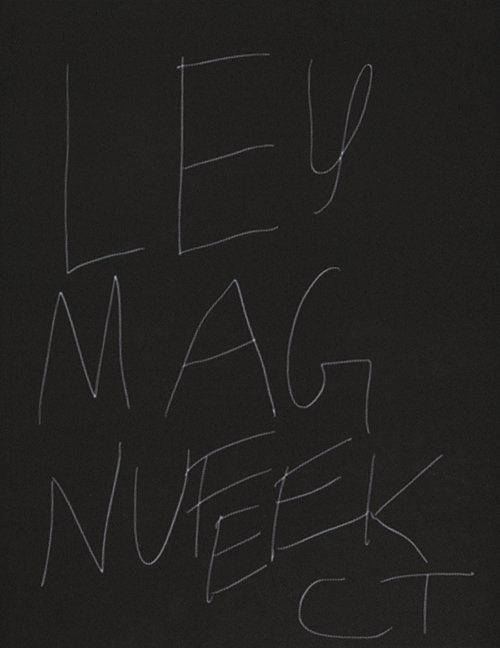 LEY
MAG
NUFEEK
CT